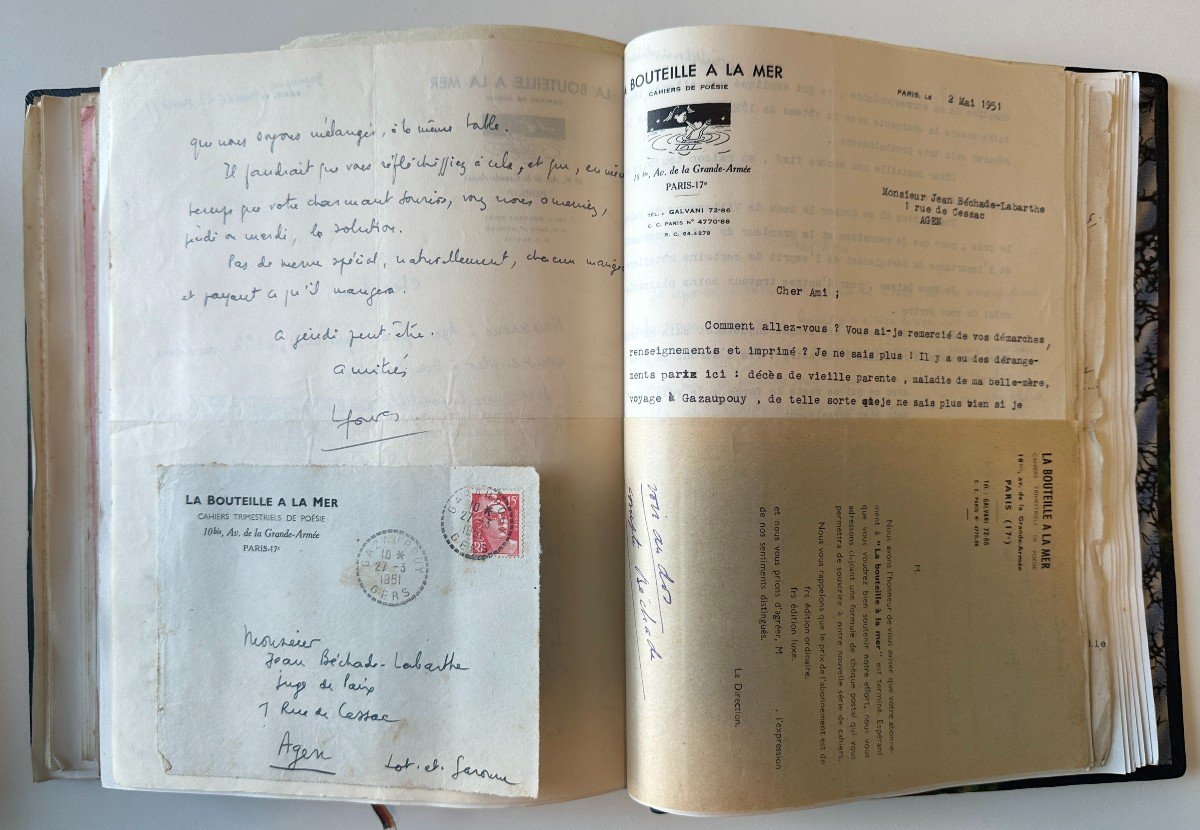 que nous soyons mélangés, à la même table.
Il faudrait que vous réfléchissiez à cela, et que, en même
temps que votre charmant sourire, vous nous ameniez,
jeudi ou mardi, la solution.
Pas de menu spécial, naturellement, chacun mangeant
et payant ce qu'il mangera.
A jeudi peut-être.
Amitiés
LA BOUTEILLE A LA MER
CAHIERS TRIMESTRIELS DE POÉSIE
10bis, Av. de la Grande-Armée
PARIS-17e
10 *
27 -3
1951
GERS
15F
RF
Monsieur
Jean Béchade-Labarthe
Juge de Paix
1 Rue de Cessac
Agen
Lot-et-Garonne
A BOUTEILLE A LA MER
CAHIERS DE POÉSIE
10 bis, Av. de la Grande-Armée
PARIS-17e
TÉL. : GALVANI 72-86
C. C. PARIS N° 4770-88
R. C. 98.4278
PARIS, LE 2 Mai 1951
Monsieur Jean Béchade-Labarthe
1 rue de Cessac
AGEN
Cher Ami ;
Comment allez-vous ? Vous ai-je remercié de vos démarches,
renseignements et imprimé ? Je ne sais plus ! Il y a eu des dérange-
ments parix ici : décès de vieille parente , maladie de ma belle-mère,
voyage à Gazaupouy , de telle sorte que je ne sais plus bien si je
LA BOUTEILLE A LA MER
CAHIERS TRIMESTRIELS DE POÉSIE
10bis, av. de la Grande-Armée
PARIS (17e)
TÉL. : GALVANI 72-86
C. C. PARIS N° 4770-88
M.
Nous avons l'honneur de vous aviser que votre abonne-
ment à "La bouteille à la mer" est terminé. Espérant
que vous voudrez bien soutenir notre effort, nous vous
adressons ci-joint une formule de chèque postal qui vous
permettra de souscrire à notre nouvelle série de cahiers.
Nous vous rappelons que le prix de l'abonnement est de
frs édition ordinaire.
frs édition luxe.
et nous vous prions d'agréer, M , l'expression
de nos sentiments distingués.
La Direction.
voir au dos
Béchade